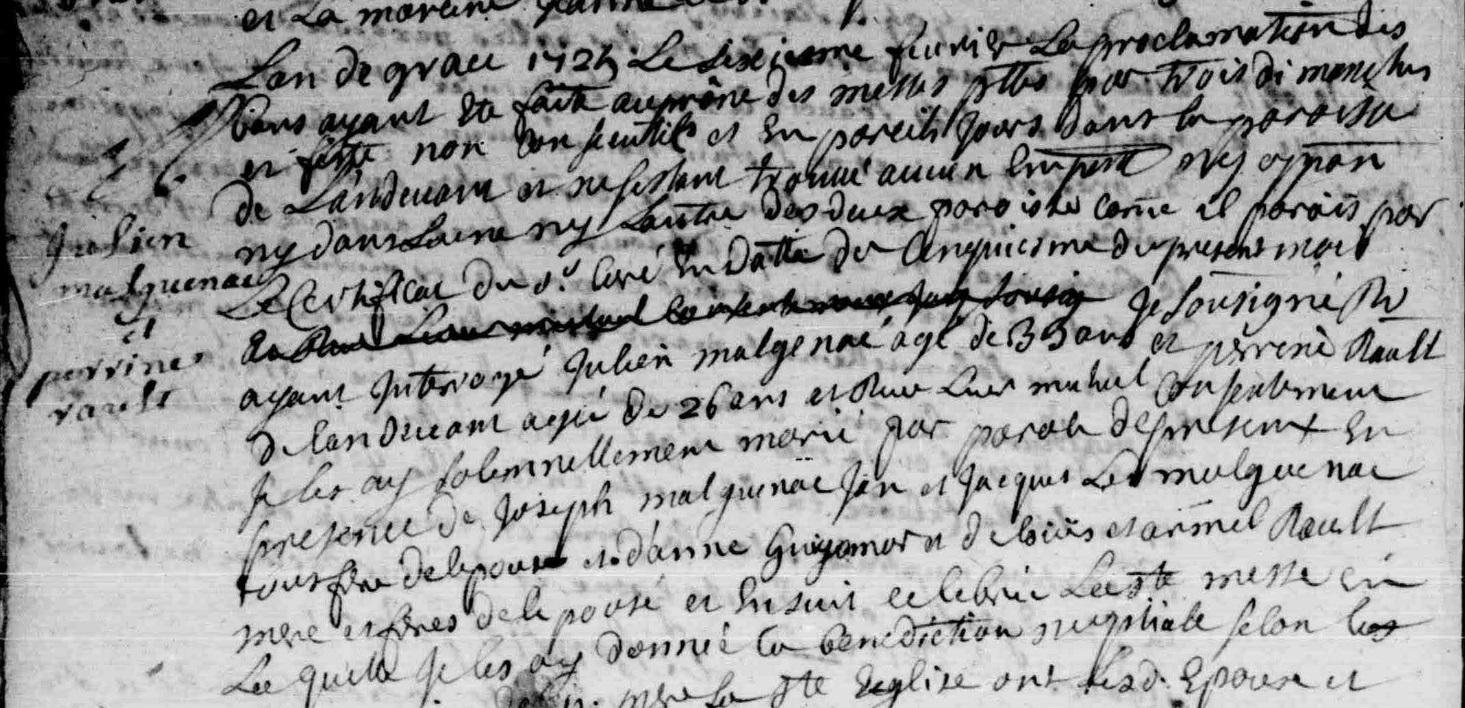 et La mareine Jeanne
Lan de grace 1725 Le sixieme fevrier La proclamation des
Bans ayant Eté faite au prône des messes ptles par trois dimanches
et feste non Consecutifs et En pareils Jours dans la paroisse
de Landevant et ne sestant trouvé aucun Empest ny oppon
ny dans Lune ny Lautre des deux paroisses come il parois par
Le Certificat du Sr. Curé En datte du Cinquiesme du present mois
Je Sousigné Rr
ayant Interrogé Julien malgenac agé de 33 ans et perrine Rault
de landevant agée de 26 ans et Leur mutuel Consentement
Je les ay solemnellement marié par parole de present En
presence de Joseph malguenac Jan et Jacques Le malguenac
tous frere de lepoux et danne Guyomar et de et armel Rault
mere et freres de lepouse et Ensuit celebrée La Ste messe en
La quelle Je les ay donné la benediction nuptiale selon les
mere la Ste Eglise ont lesd. Epoux et
Julien
malguenac
et
perrine
rault